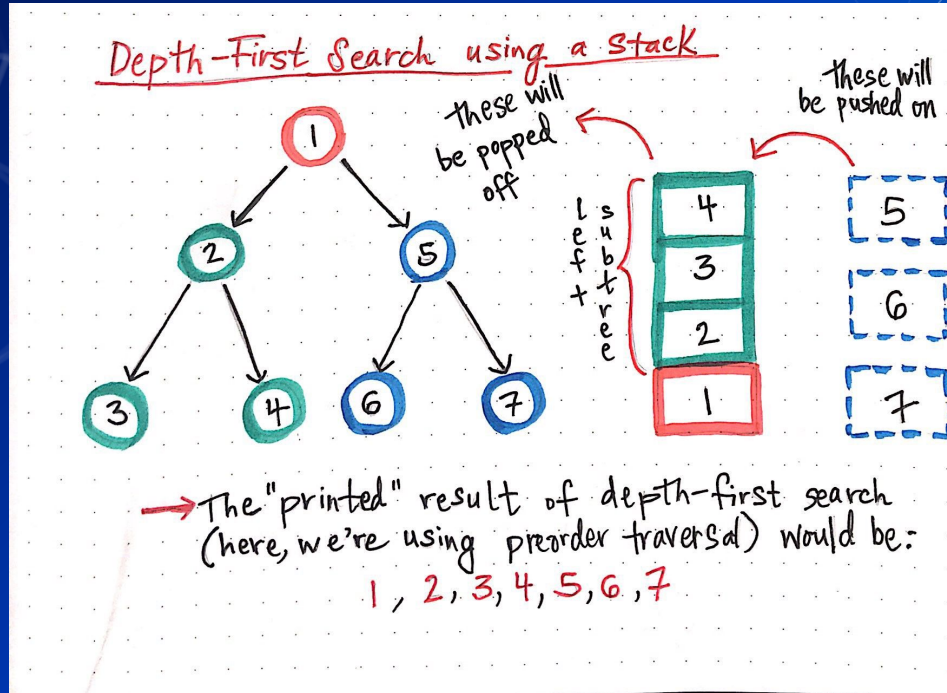 Depth-First Search using a stack
1
2
5
3
4
6
7
these will
be popped
off
these will
be pushed on
left
subtree
4
3
2
1
5
6
7
→The "printed" result of depth-first search
(here, we're using preorder traversal) would be:
1, 2, 3, 4, 5, 6, 7